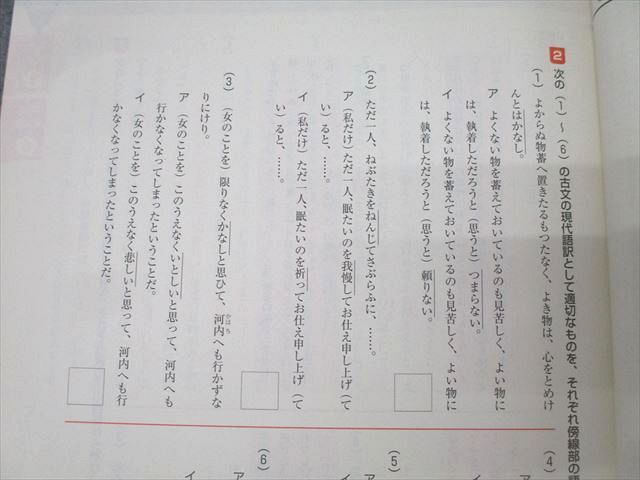 2 次の(1)～(6)の古文の現代語訳として適切なものを、それぞれ傍線部の
(1) よからぬ物蓄へ置きたるもつたなく、よき物は、心をとめけ
んとはかなし。
ア よくない物を蓄えておいているのも見苦しく、よい物に
は、執着しただろうと(思うと)つまらない。
イ よくない物を蓄えておいているのも見苦しく、よい物に
は、執着しただろうと(思うと)頼りない。
(2) ただ一人、ねぶたきをねんじてさぶらふに、……。
ア (私だけ)ただ一人、眠たいのを我慢してお仕え申し上げ(て
い)ると、……。
イ (私だけ)ただ一人、眠たいのを祈ってお仕え申し上げ(て
い)ると、……。
(3) (女のことを)限りなくかなしと思ひて、河内へも行かずな
かはち
りにけり。
ア (女のことを)このうえなくいとしいと思って、河内へも
行かなくなってしまったということだ。
イ (女のことを)このうえなく悲しいと思って、河内へも行
かなくなってしまったということだ。
(4)
ア
イ
(5)
ア
イ
(6)
ア
イ